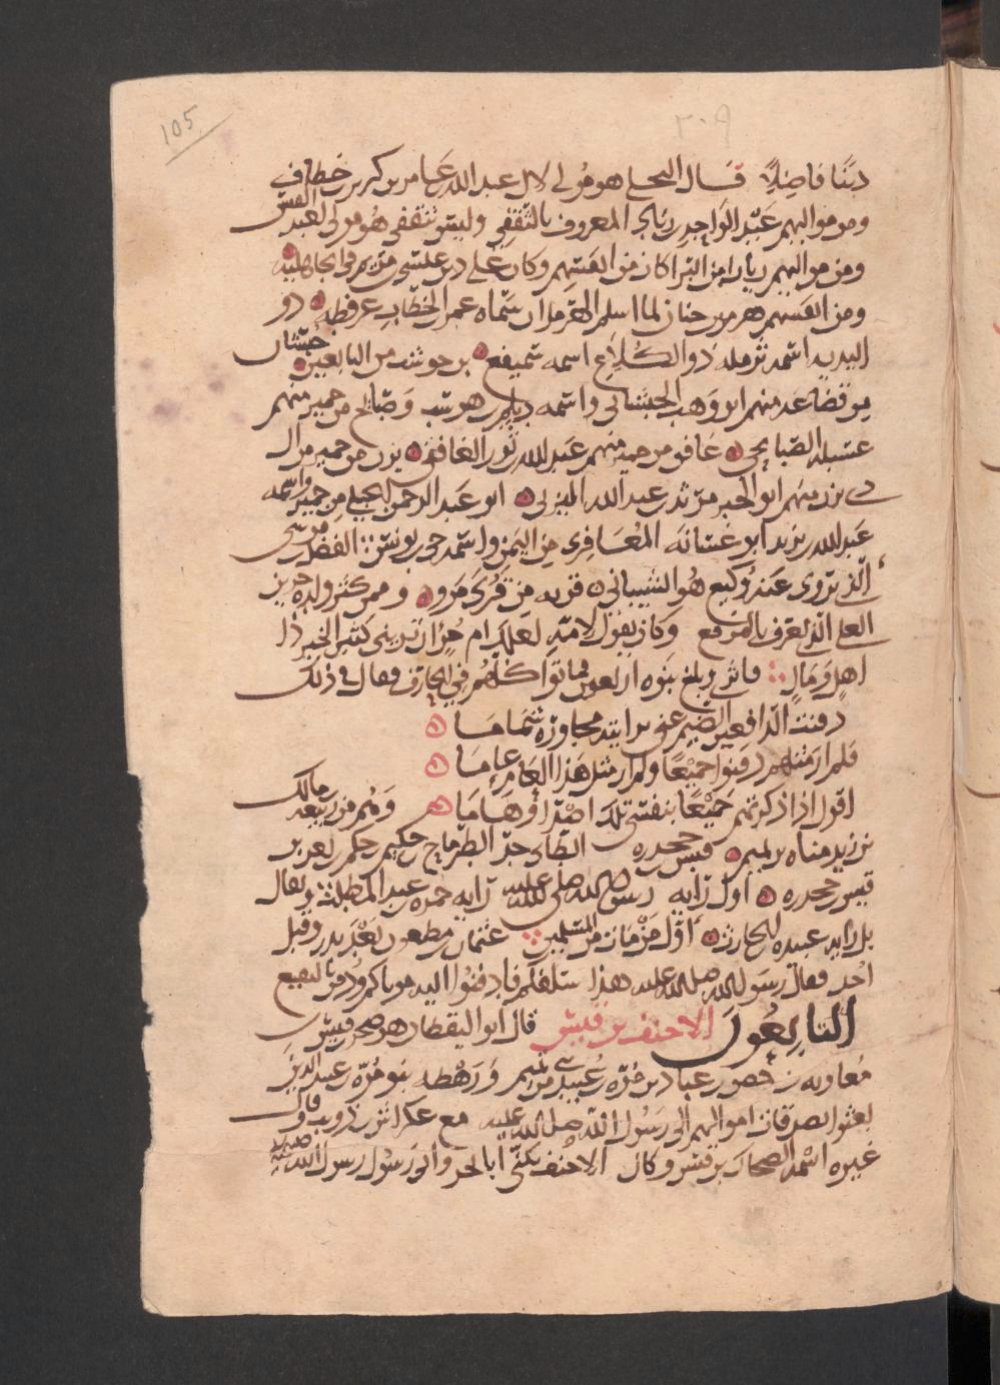 105
٣٠٩
دينا فاضلا قال البجلي هو مولى لال عبد الله عامر بن كريز خطاف
ومن مواليهم عبد الواحد زياد المعروف بالثقفي وليس بثقفي هو مولى لعبد القيس
ومن مواليهم كان من القسهم وكان على دين عيسى بن مريم في الجاهلية
ومن القسهم هرم بن حيان لما اسلم الهرمزان سماه عمر بن الخطاب عرفطه ذو
اليدين اسمه ذو الكلاع اسمه سميفع بن حوشب من التابعين جيشان
من قضاعه منهم ابو وهب الجيشاني واسمه ديلم بن هوشب وصنابح من حمير منهم
الصنابحي غافق من حمير منهم عبد الله ثور الغافقي يزن من حمير من ال
ذي يزن منهم ابو الخير مرثد بن عبد الله اليزني ابو عبد الرحمن الحبلي من حمير واسمه
عبد الله بن يزيد ابو عشانه المعافري من اليمن واسمه حي بن يومن الفضل بن موسى
الذي يروى عنه وكيع هو الشيباني قريه من قرى مرو وممن كثر ولده
الذي يعرف وكان يقول لامته لعلك ام ان تريني كثير الخير ذا
اهل ومال فاثرى وبلغ بنوه اربعون فماتوا كلهم في الجارف فقال في ذلك
دفنت الدافعين الضيم عني برابيه مجاورة شماما
فلم ار مثلهم دفنوا جميعا ولم ار مثل هذا العام عاما
اقول اذا ذكرتهم جميعا بنفسي تلك اصداء وهاما ومنهم من ربيعه مالك
بن زيد مناه بن تميم قيس جحدره الطائي جد الطرماح حكيم حكم نفر بن
قيس جحدره اول رايه رسول الله صلى الله عليه رايه حمزه عبد المطلب ويقال
بل رايه عبيده الحارث اول من مات من المسلمين عثمان مظعون بعد بدر وقبل
احد فقال رسول الله صلى الله عليه هذا سلفكم فادفنوا اليه موتاكم ودفن بالبقيع
التابعون الاحنف بن قيس قال ابو اليقظان هو صخر بن قيس بن
معاويه بن حصن بن عباد بن مره بن عبيد من تميم ورهطه بنو مره بن عبيد الذين
بعثوا بصدقات اموالهم الى رسول الله صلى الله عليه مع عكراش بن ذويب وقال
غيره اسمه الضحاك بن قيس وكان الاحنف يكنى ابا بحر واتى رسول رسول الله صلى الله عليه